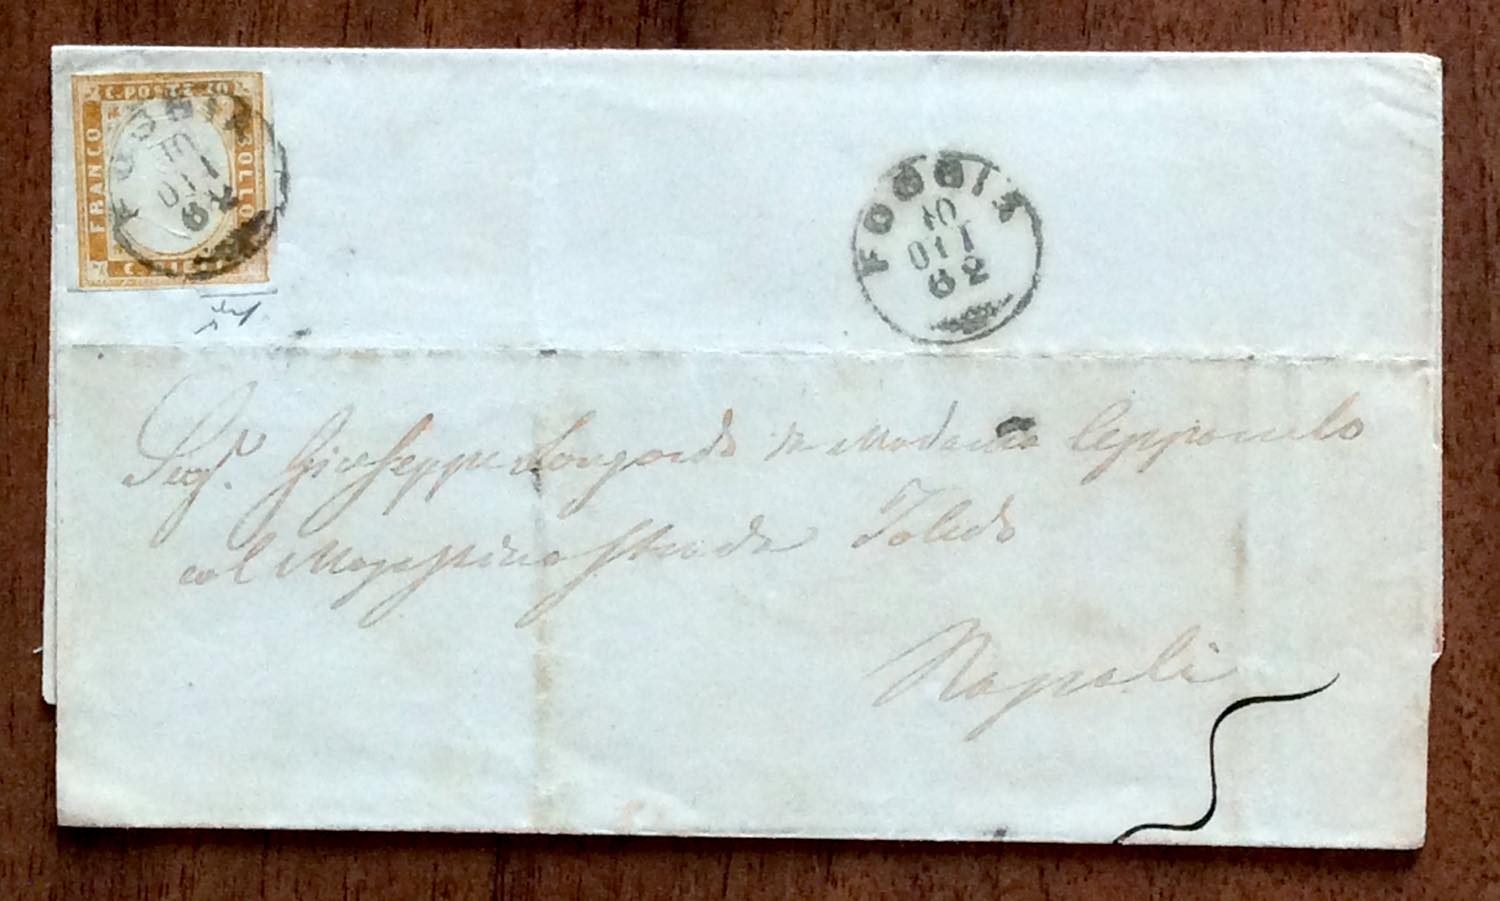 C. POSTE 10
FRANCO
BOLLO
FOGGIA
10
OTT
62
FOGGIA
10
OTT
62
Sigr. Giuseppe Longardo
col Magazzino Strada Toledo
Napoli